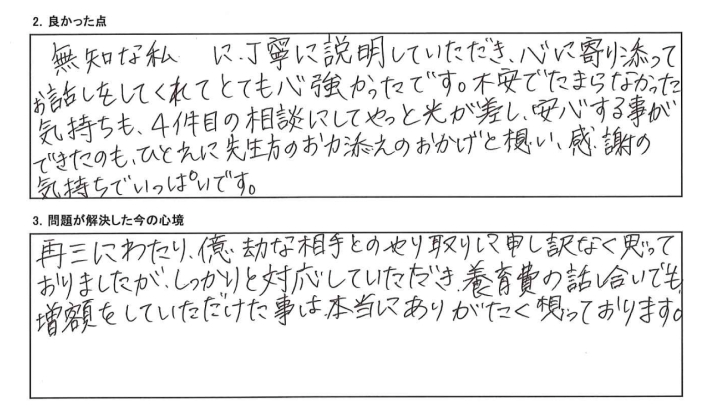 2. 良かった点
無知な私 に、丁寧に説明していただき、心に寄り添って
お話しをしてくれてとても心強かったです。不安でたまらなかった
気持ちも、4件目の相談にしてやっと光が差し、安心する事が
できたのも、ひとえに先生方のお力添えのおかげと想い、感謝の
気持ちでいっぱいです。
3. 問題が解決した今の心境
再三にわたり、億劫な相手とのやり取りして申し訳なく思って
おりましたが、しっかりと対応していただき、養育費の話し合いでも、
増額をしていただけた事は、本当にありがたく想っております。